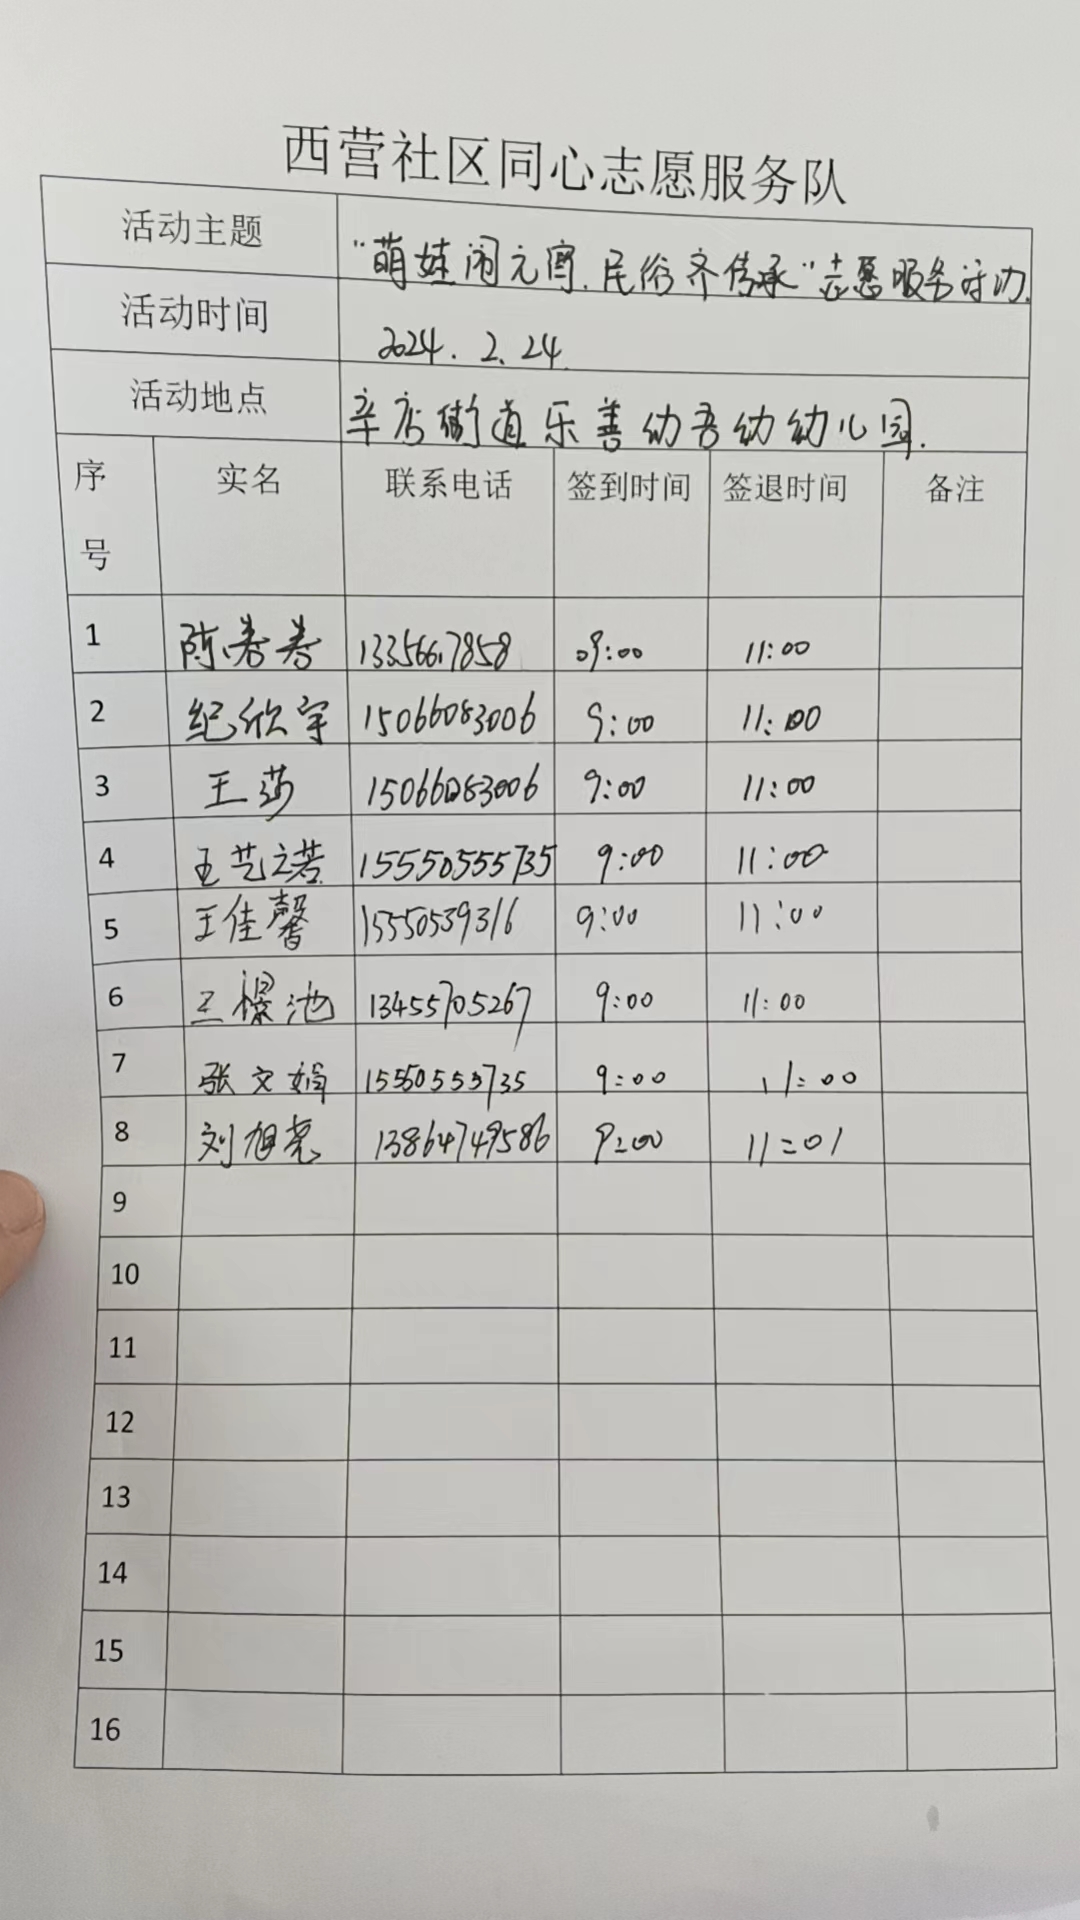 西营社区同心志愿服务队
活动主题 "萌娃闹元宵.民俗齐传承"志愿服务活动.
活动时间 2024.2.24.
活动地点 辛店街道乐善幼吾幼幼儿园.
序号 实名 联系电话 签到时间 签退时间 备注
1 陈春春 09:00 11:00
2 纪欣宇 15066083006 9:00 11:00
3 王莎 15066083006 9:00 11:00
4 王艺诺 15550555735 9:00 11:00
5 王佳馨 15550539316 9:00 11:00
6 王 池 13455705267 9:00 11:00
7 张文娟 15550555735 9:00 11:00
8 刘旭尧 13864749586 9:00 11:01
9
10
11
12
13
14
15
16